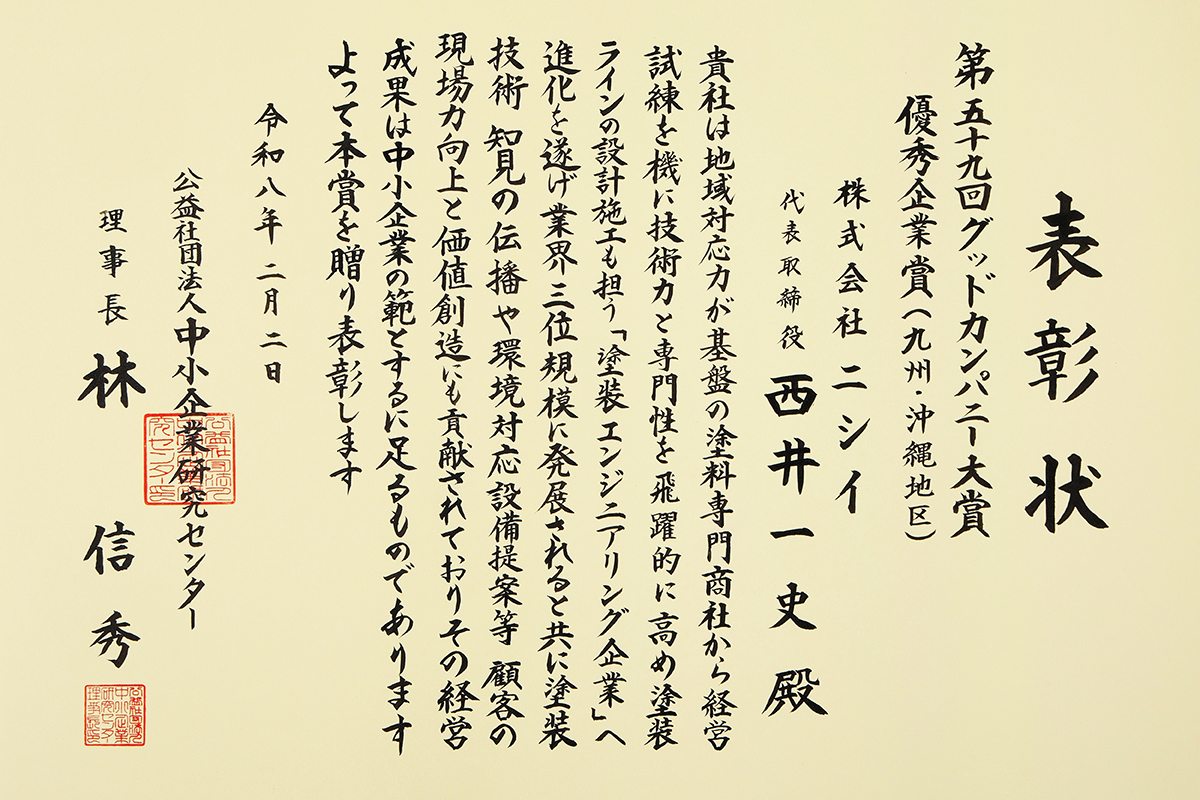 表彰状
第五十九回グッドカンパニー大賞
優秀企業賞(九州・沖縄地区)
株式会社ニシイ
代表取締役 西井一史殿
貴社は地域対応力が基盤の塗料専門商社から経営
試練を機に技術力と専門性を飛躍的に高め塗装
ラインの設計施工も担う「塗装エンジニアリング企業」へ
進化を遂げ業界三位規模に発展されると共に塗装
技術 知見の伝播や環境対応設備提案等 顧客の
現場力向上と価値創造にも貢献されておりその経営
成果は中小企業の範とするに足るものであります
よって本賞を贈り表彰します
令和八年二月二日
公益社団法人中小企業研究センター
理事長 林 信秀